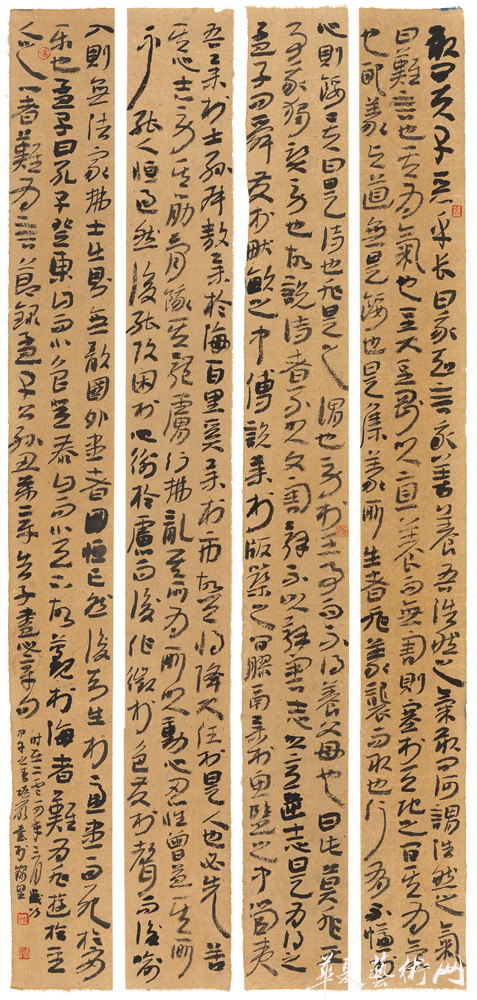 敢问夫子恶乎长曰我知言我善養吾浩然之氣敢问何謂浩然之氣
曰難言也其为氣也至大至剛以直養而無害則塞於天地之间其为氣
也配義与道無是餒也是集義所生者非義襲而取也行有不慊於
心則餒矣曰是诗也非是之谓也劳於王事而不得養父母也曰此莫非王
事我獨賢劳也故说诗者不以文害辞不以辞害志以意逆志是为得之
孟子曰舜发於畎畝之中傅说举於版築之间膠鬲举於鱼盐之中管夷
吾举於士孙叔敖举於海百里奚举於市故天将降大任於是人也必先苦
其心志劳其筋骨餓其體膚行拂亂其所为所以動心忍性曾益其所
不能人恒过然後能改困於心衡於慮而後作徵於色发於聲而後喻
入則無法家拂士出則無敵國外患者國恒亡然後知生於憂患而死於安
乐也孟子曰孔子登東山而小魯登泰山而小天下故觀於海者難为水游於圣
人之门者難为言節錄孟子公孙丑第二章告子盡心章句
时在二零一四年三月歲次
甲午之春
華夏藝術网